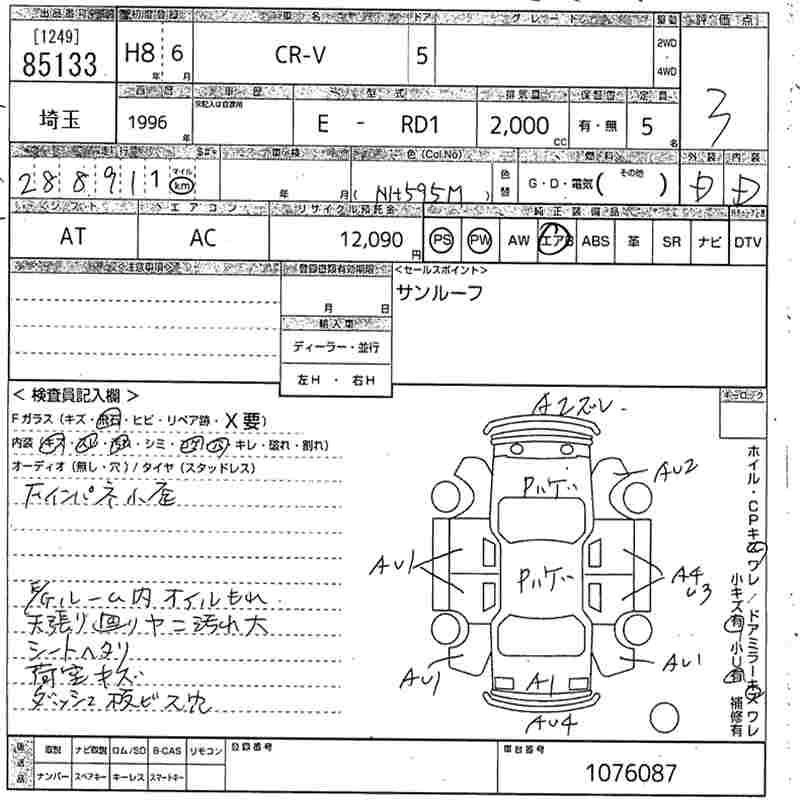 出品番号 初度登録 車名 ドア グレード 駆動 評価点
[1249]
85133 H8 6 CR-V 5 2WD・4WD 3
年 月
西暦 車歴 型式 排気量 保証書 定員
埼玉 1996年 E - RD1 2,000cc 有・無 5名
記入無は自家用
走行 車検 色(Col.No) 燃料 外装 内装
288911 マイル km 年 月 (NH595M) 色替 G・D・電気(その他) D D
シフト エアコン リサイクル預託金 純正装備品
AT AC 12,090円 PS PW AW エアB ABS 革 SR ナビ DTV
<注意事項> 登録書類有効期限 <セールスポイント>
月 日 サンルーフ
輸入車
ディーラー・並行
左H・右H
<検査員記入欄> キーロック
Fガラス(キズ・飛石・ヒビ・リペア跡・X要)
オーディオ(無し・穴)/タイヤ(スタッドレス)
下インパネ小尾
E/Gルーム内オイルもれ
天張り回りヤニ汚れ大
シートヘタリ
荷室キズ
ダッシュ板ビス穴
A2ズレ
AU2
Pハゲ
AU1
Pハゲ
A4
U3
AU1
A1
AU1
AU4
ホイル・CPキズワレ/ドアミラーキズワレ
小キズ有 小U有 補修有
後送品 取説 ナビ取説 ロム/SD B-CAS リモコン 登録番号 車台番号
ナンバー スペアキー キーレス スマートキー 1076087